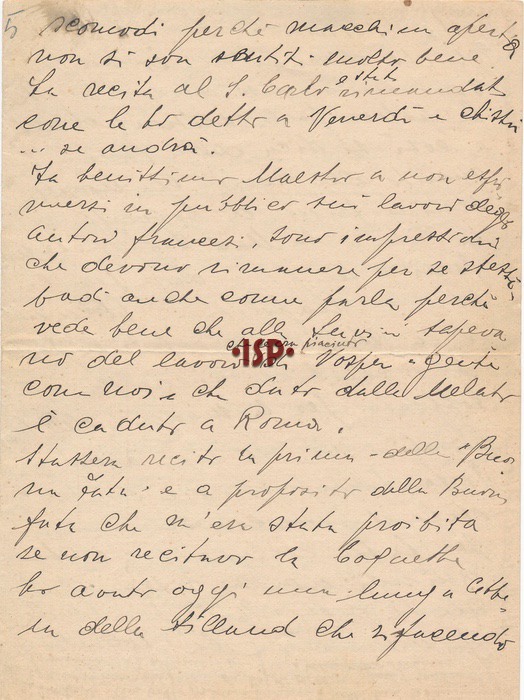 5 scomodi perché macchina aperta
non si son sentiti molto bene.
La recita al S. Carlo è stata rimandata
come le ho detto a Venerdì e chissà
... se andrà.
Fa benissimo Maestro a non espri
mersi in pubblico sui lavori degli
autori francesi, sono impressioni
che devono rimanere per se stessi
badi anche come parla perché
vede bene che alla sapeva
no del lavoro di Vosper
che era piaciuto
ISP
gente
come noi e che dato dalla Melato
è caduto a Roma.
Stassera recito la prima della "Buo
na Fata" e a proposito della Buona
fata che m'era stata proibita
se non recitavo la Coquette
ho avuto oggi una lunga lette
ra della che rifacendo